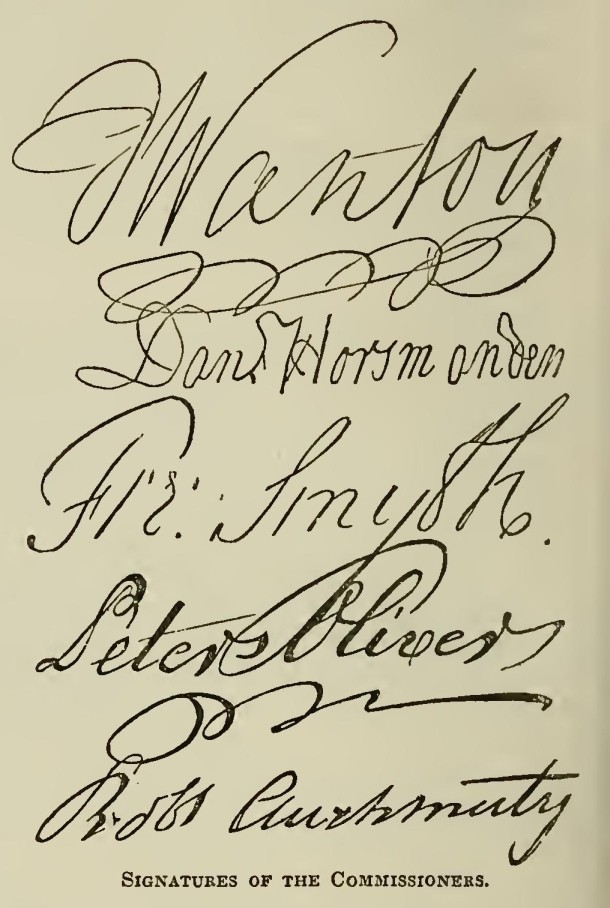 J Wanton
Dan.l Horsmanden
Fre: Smyth.
Peter Oliver
Rob.t Auchmuty
SIGNATURES OF THE COMMISSIONERS.